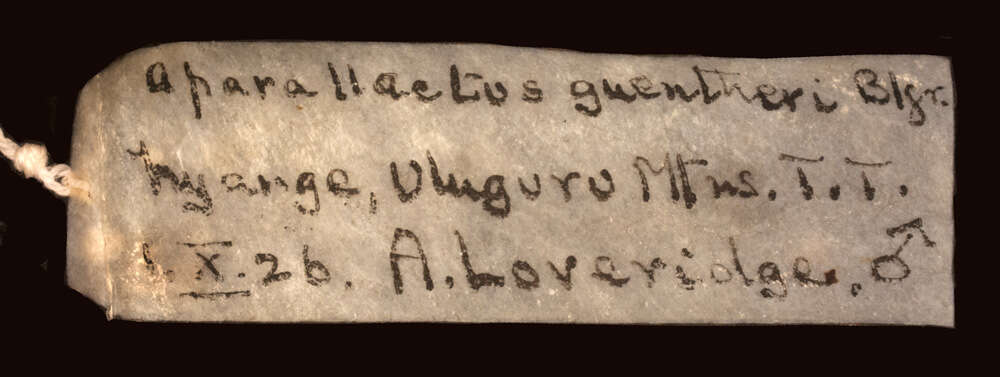 Aparallactus guentheri Blgr.
Nyange, Uluguru Mtns. T.T.
1. X. 26. A. Loveridge, ♂